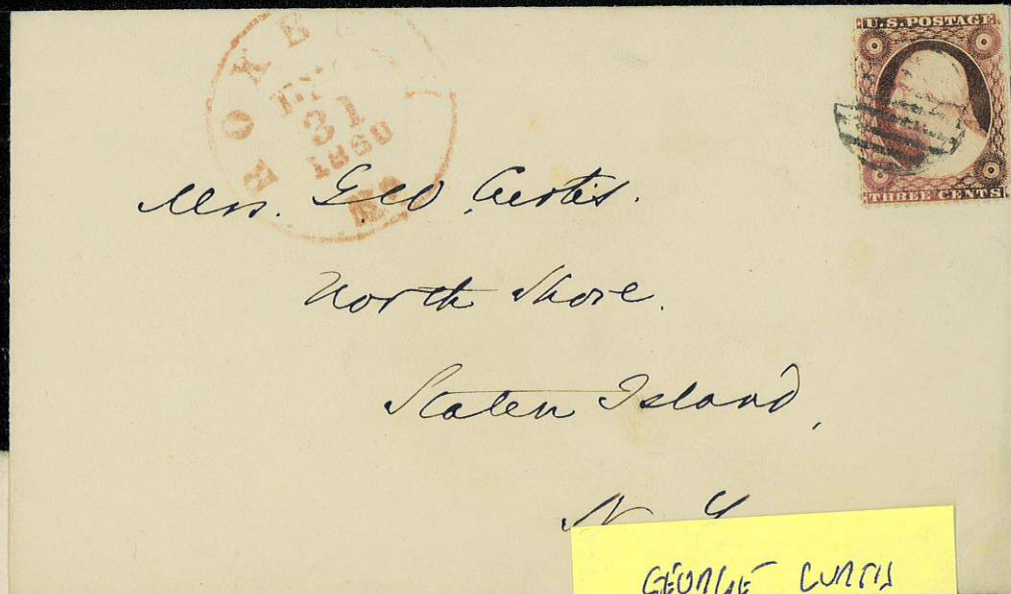 ROXB
31
1860
U.S. POSTAGE
THREE CENTS
Mrs. Geo Curtis.
North Shore.
Staten Island,
N Y
GEORGE CURTIS